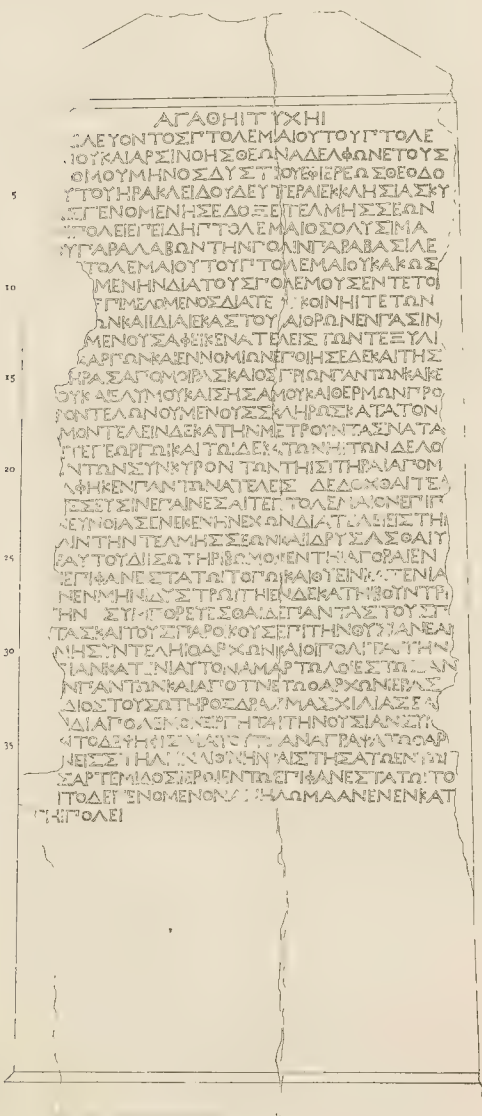 ΑΓΑΘΗΙΤΥΧΗΙ
ΛΕΥΟΝΤΟΣΠΤΟΛΕΜΑΙΟΥΤΟΥΠΤΟΛΕ
ΙΟΥΚΑΙΑΡΣΙΝΟΗΣΘΕΩΝΑΔΕΛΦΩΝΕΤΟΥΣ
ΘΜΟΥΜΗΝΟΣΔΥΣΤΙΟΥΕΦΙΕΡΕΩΣΘΕΟΔΟ
5 ΥΤΟΥΗΡΑΚΛΕΙΔΟΥΔΕΥΤΕΡΑΙΕΚΚΛΗΣΙΑΣΚΥ
ΣΓΕΝΟΜΕΝΗΣΕΔΟΞΕΤΕΛΜΗΣΣΕΩΝ
ΠΟΛΕΙΕΠΕΙΔΗΠΤΟΛΕΜΑΙΟΣΟΛΥΣΙΜΑ
ΥΠΑΡΑΛΑΒΩΝΤΗΝΠΟΛΙΝΠΑΡΑΒΑΣΙΛΕ
ΤΟΛΕΜΑΙΟΥΤΟΥΠΤΟΛΕΜΑΙΟΥΚΑΚΩΣ
10 ΜΕΝΗΝΔΙΑΤΟΥΣΠΟΛΕΜΟΥΣΕΝΤΕΤΟΙ
ΕΠΙΜΕΛΟΜΕΝΟΣΔΙΑΤΕ ΚΟΙΝΗΙΤΕΤΩΝ
ΩΝΚΑΙΙΔΙΑΙΕΚΑΣΤΟΥ ΑΙΟΡΩΝΕΝΠΑΣΙΝ
ΜΕΝΟΥΣΑΦΕΙΚΕΝΑΤΕΛΕΙΣ ΤΩΝΤΕΞΥΛΙ
ΚΑΡΠΩΝΚΑΙΕΝΝΟΜΙΩΝΕΠΟΙΗΣΕΔΕΚΑΙΤΗΣ
15 ΗΡΑΣΑΠΟΜΟΙΡΑΣΚΑΙΟΣΠΡΙΩΝΠΑΝΤΩΝΚΑΙΚΕ
ΟΥΚΑΙΕΛΥΜΟΥΚΑΙΣΗΣΑΜΟΥΚΑΙΘΕΡΜΩΝΠΡΟ
ΟΝΤΕΛΩΝΟΥΜΕΝΟΥΣΣΚΛΗΡΩΣΚΑΤΑΤΟΝ
ΜΟΝΤΕΛΕΙΝΔΕΚΑΤΗΝΜΕΤΡΟΥΝΤΑΣΝΑΤΑ
ΤΕΓΕΩΡΓΩΙΚΑΙΤΩΙΔΕΚΑΤΩΝΗΙΤΩΝΔΕΛΟ
20 ΝΤΩΝΣΥΝΚΥΡΟΝ ΤΩΝΤΗΙΣΙΤΗΡΑΙΑΠΟΜ
ΑΦΗΚΕΝΠΑΝΤΩΝΑΤΕΛΕΙΣ ΔΕΔΟΧΘΑΙΤΕΛ
ΕΣΣΕΥΣΙΝΕΠΑΙΝΕΣΑΙΤΕΠΤΟΛΕΜΑΙΟΝΕΠΙΠ
ΕΥΝΟΙΑΣΕΝΕΚΕΝΗΝΕΧΩΝΔΙΑΤΕΛΕΙΕΙΣΤΗΙ
ΛΙΝΤΗΝΤΕΛΜΗΣΣΕΩΝΚΑΙΙΔΡΥΣΑΣΘΑΙΥ
25 ΕΑΥΤΟΥΔΙΙΣΩΤΗΡΙΒΩΜΟΝΕΝΤΗΙΑΓΟΡΑΙΕΝ
ΕΠΙΦΑΝΕΣΤΑΤΩΙΤΟΠΩΙΚΑΙΘΥΕΙΝΚΑΤΕΝΙΑ
ΝΕΝΜΗΝΙΔΥΣΤΡΩΙΤΗΙΕΝΔΕΚΑΤΗΙΒΟΥΝΤΡΙ
ΗΝ ΣΥΜΠΟΡΕΥΕΣΘΑΙΔΕΠΑΝΤΑΣΤΟΥΣΠ
ΤΑΣΚΑΙΤΟΥΣΠΑΡΟΙΚΟΥΣΕΠΙΤΗΝΘΥΣΙΑΝΕΑ
30 ΜΗΣΥΝΤΕΛΗΙΟΑΡΧΩΝΚΑΙΟΙΠΟΛΙΤΑΙΤΗΝ
ΣΙΑΝΚΑΤΕΝΙΑΥΤΟΝΑΜΑΡΤΩΛΟΙΕΣΤΩΣΑΝ
ΝΠΑΝΤΩΝΚΑΙΑΠΟΤΙΝΕΤΩΟΑΡΧΩΝΙΕΡΑΣ
ΔΙΟΣΤΟΥΣΩΤΗΡΟΣΔΡΑΧΜΑΣΧΙΛΙΑΣΕΑ
ΔΙΑΠΟΛΕΜΟΝΕΡΓΗΤΑΙΤΗΝΘΥΣΙΑΝΣΥΝ
35 ΤΟΔΕΨΗΦΙΣΜΑΤΟΥΤΟΑΝΑΓΡΑΨΑΤΩΟΑΡ
ΝΕΙΣΣΤΗΛΗΝΛΙΘΙΝΗΝΚΑΙΣΤΗΣΑΤΩΕΝΤΩΙ
ΣΑΡΤΕΜΙΔΟΣΙΕΡΩΙΕΝΤΩΙΕΠΙΦΑΝΕΣΤΑΤΩΙΤΟ
ΙΤΟΔΕΓΕΝΟΜΕΝΟΝΑΝΗΛΩΜΑΑΝΕΝΕΝΚΑΤ
ΤΗΙΠΟΛΕΙ